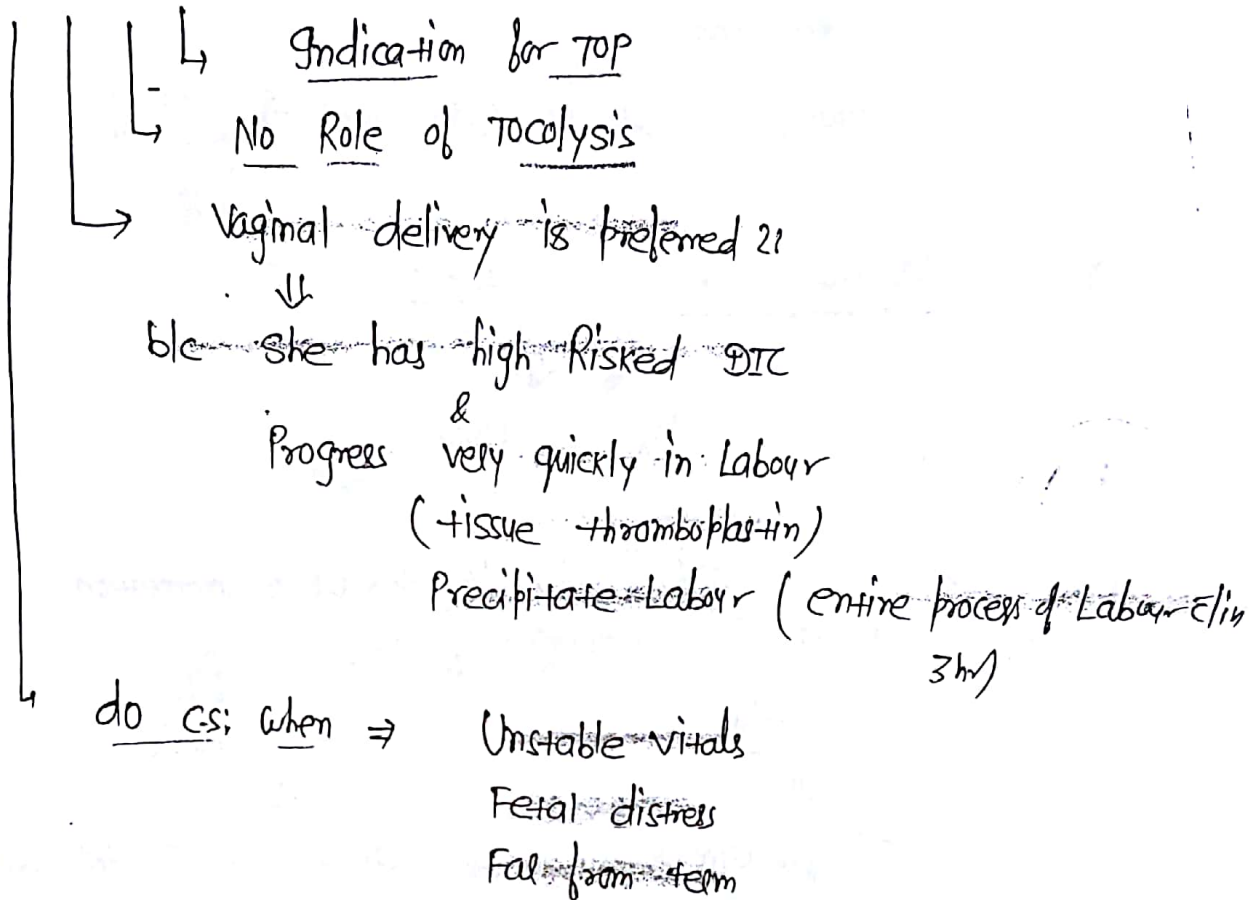 ↳ Indication for TOP
↳ No Role of Tocolysis
→ Vaginal delivery is preferred ??
⇓
b/c she has high Risked DIC
&
Progress very quickly in Labour
(tissue thromboplastin)
Precipitate Labour ( entire process of Labour c̄/in
3 hr)
↳ do c.s; when ⇒ Unstable vitals
Fetal distress
Far from term